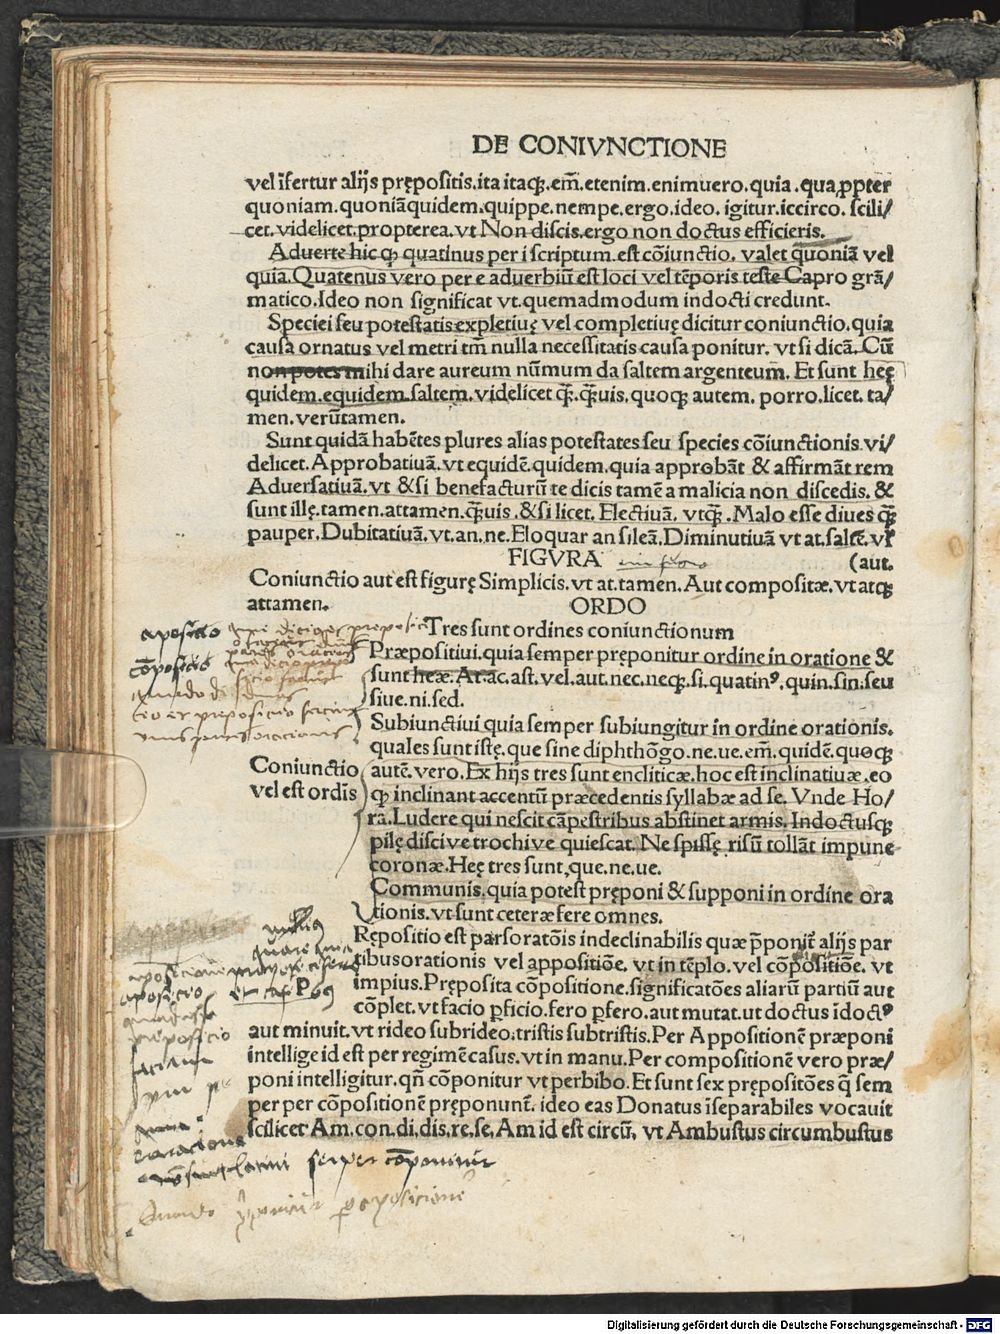 DE CONIVNCTIONE
vel īfertur alijs prępositis.ita itaqꝫ.em̄.etenim.enimuero.quia.qua ꝓpter
quoniam.quoniāquidem.quippe.nempe.ergo.ideo.igitur.iccirco.scili/
cet.videlicet.propterea.vt Non discis.ergo non doctus efficieris.
Aduerte hic qꝫ quatinus per i scriptum.est cōiunctio.valet quoniā vel
quia.Quatenus vero per e aduerbiū est loci vel tēporis teste Capro grā/
matico.Ideo non significat vt.quemadmodum indocti credunt.
Speciei seu potestatis expletiuę vel completiuę dicitur coniunctio.quia
causa ornatus vel metri tm̄ nulla necessitatis causa ponitur.vt si dicā.Cū
non potes mihi dare aureum nūmum da saltem argenteum.Et sunt heę
quidem.equidem.saltem.videlicet qꝫ̄.qꝫ̄uis.quoqꝫ autem.porro.licet.ta/
men.verūtamen.
Sunt quidā habētes plures alias potestates seu species cōiunctionis vi/
delicet.Approbatiuā.vt equidē.quidem.quia approbāt & affirmāt rem
Aduersatiuā.vt & si benefacturū te dicis tamē a malicia non discedis.&
sunt illę.tamen.attamen.qꝫ̄uis.& si licet.Electiuā.vtqꝫ̄.Malo esse diues qꝫ̄
pauper.Dubitatiuā.vt.an.ne.Eloquar an sileā.Diminutiuā vt at.saltē.vl
FIGVRA (aut.
Coniunctio aut est figurę Simplicis.vt at.tamen.Aut compositæ.vt atqꝫ
attamen. ORDO
Tres sunt ordines coniunctionum
aposicio
cōposicio
Præpositiui.quia semper pręponitur ordine in oratione &
sunt heæ.At.ac.ast.vel.aut.nec.neqꝫ.si.quatinꝰ.quin.sin.seu
siue.ni.sed.
Subiunctiui quia semper subiungitur in ordine orationis.
quales sunt istę.que sine diphthōgo.ne.ue.em̄.quidē.quoqꝫ
Coniunctio
vel est ordīs
autē.vero.Ex hijs tres sunt encliticæ.hoc est inclinatiuæ.eo
qꝫ inclinant accentū præcedentis syllabæ ad se.Vnde Ho/
ra.Ludere qui nescit cāpestribus abstinet armis.Indoctusqꝫ
pilę discive trochive quiescat.Ne spissę risū tollāt impune
coronæ.Heę tres sunt,que.ne.ue.
Communis.quia potest pręponi & supponi in ordine ora
tionis.vt sunt ceteræ fere omnes.
P
Rępositio est pars oratōis indeclinabilis quæ p̄ponit̄ alijs par
tibus orationis vel appositiōe.vt in tēplo.vel cōpositiōe.vt
impius.Pręposita cōpositione.significatōes aliarū partiū aut
cōplet.vt facio ꝑficio.fero ꝑfero.aut mutat.ut doctus īdoctꝰ
aut minuit.vt rideo subrideo.tristis subtristis.Per Appositionē præponi
intellige id est per regimē casus.vt in manu.Per compositionē vero præ/
poni intelligitur.qn̄ cōponitur vt perbibo.Et sunt sex prępositōes q̄ sem
per per cōpositionē pręponunt̄.ideo eas Donatus īseparabiles vocauit
scilicet Am.con.di.dis.re.se.Am id est circū.vt Ambustus circumbustus
semper cōponuntur
Digitalisierung gefördert durch die Deutsche Forschungsgemeinschaft - DFG